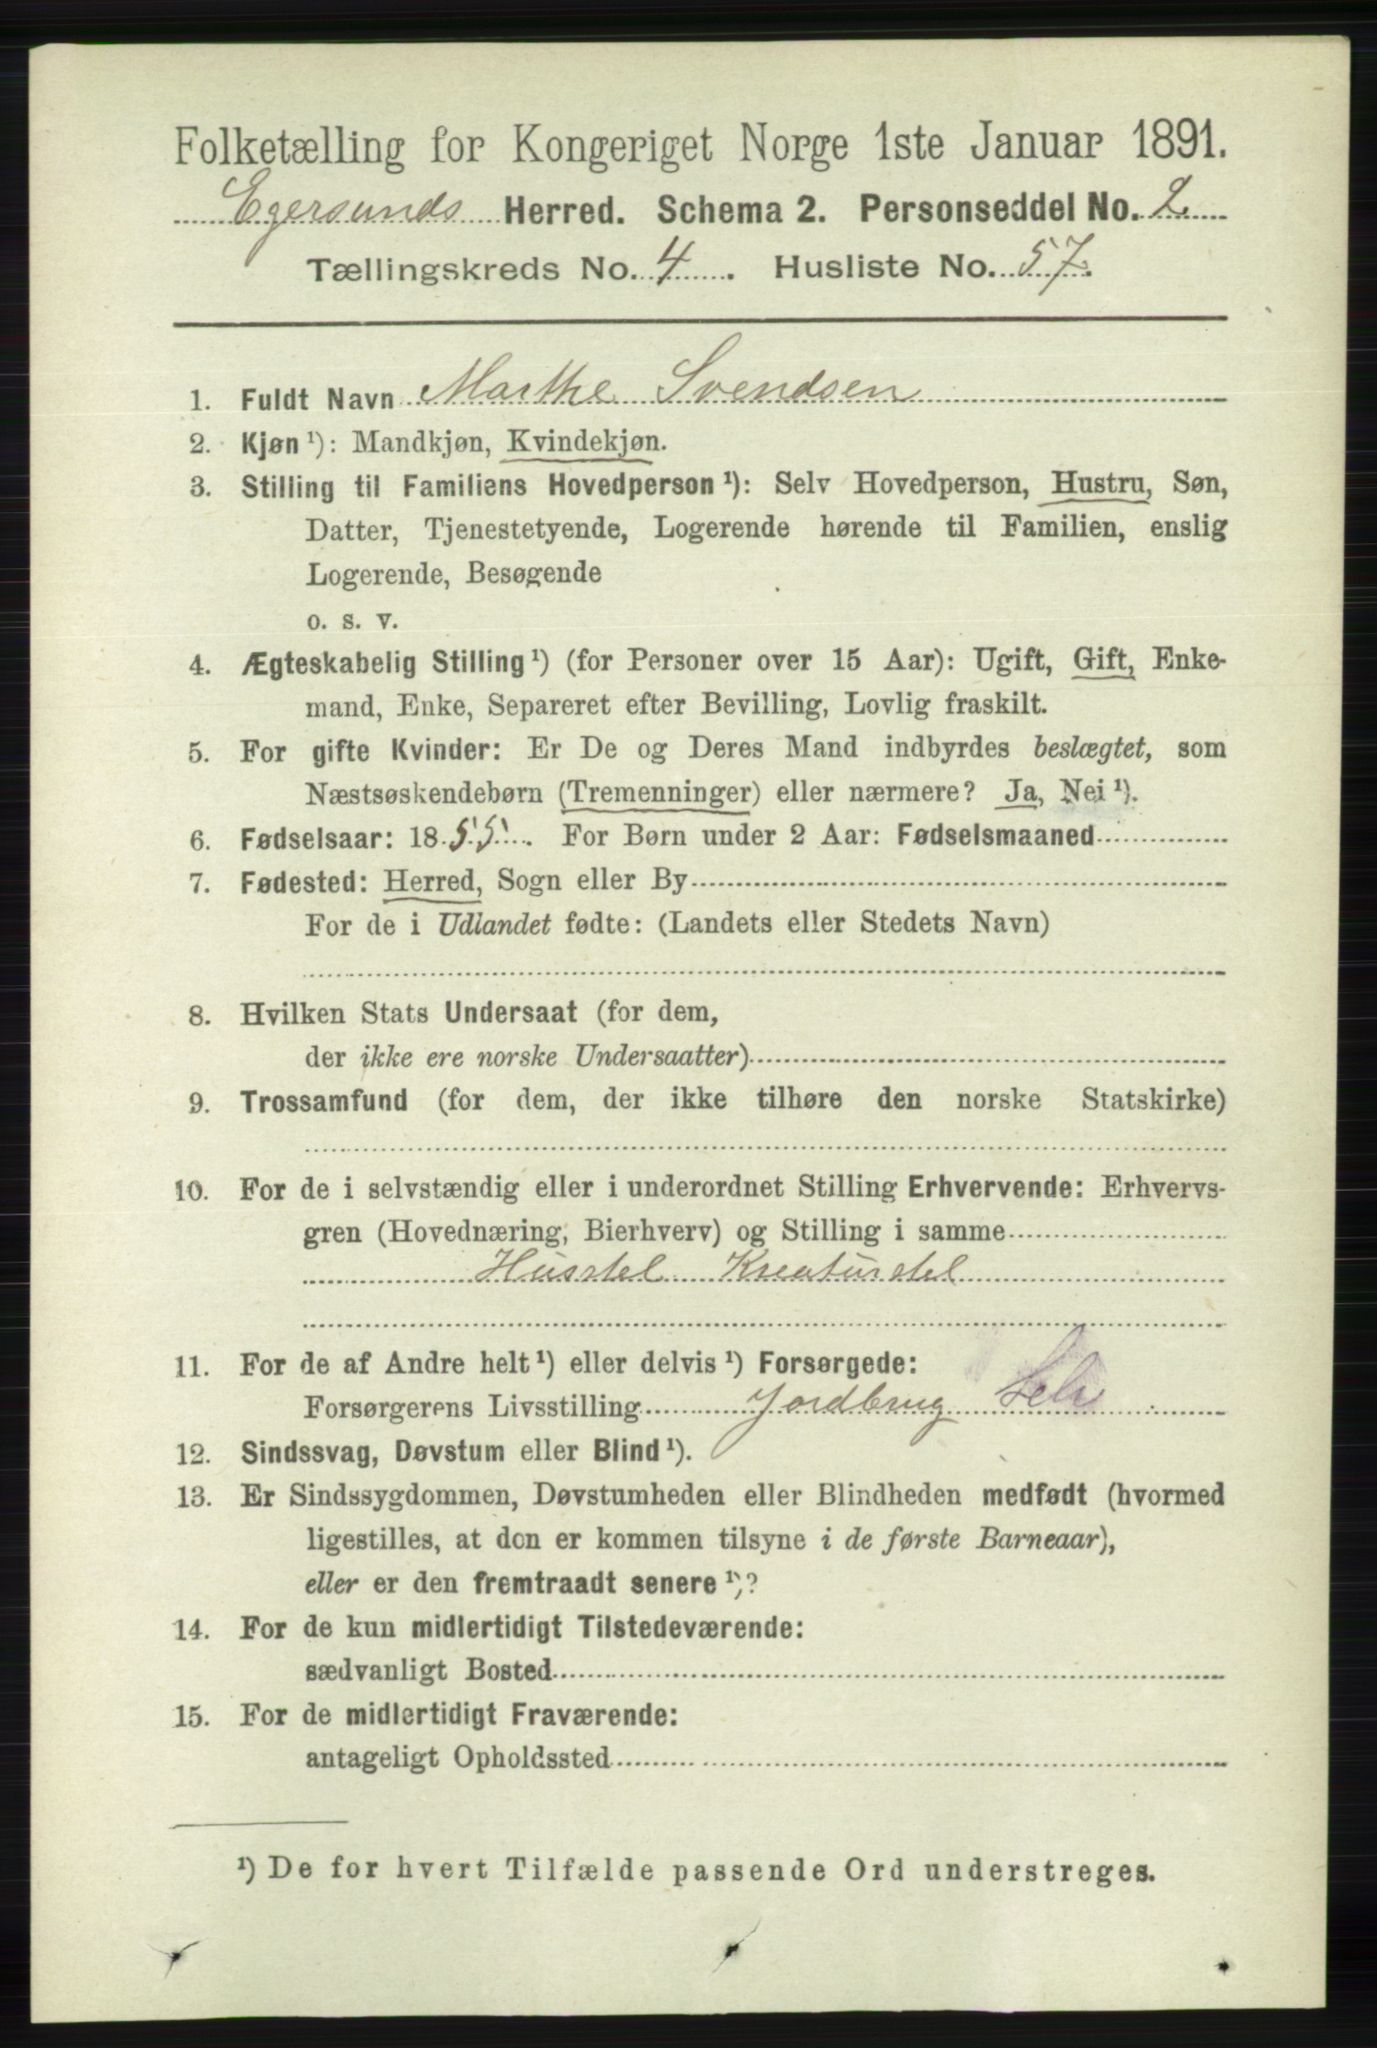 Folketælling for Kongeriget Norge 1ste Januar 1891.
Egersunds Herred. Schema 2. Personseddel No. 2
Tællingskreds No. 4. Husliste No. 57.
1. Fuldt Navn Marthe Svendsen
2. Kjøn ¹): Mandkjøn, Kvindekjøn.
3. Stilling til Familiens Hovedperson ¹): Selv Hovedperson, Hustru, Søn,
Datter, Tjenestetyende, Logerende hørende til Familien, enslig
Logerende, Besøgende
o. s. v.
4. Ægteskabelig Stilling ¹) (for Personer over 15 Aar): Ugift, Gift, Enke-
mand, Enke, Separeret efter Bevilling, Lovlig fraskilt.
5. For gifte Kvinder: Er De og Deres Mand indbyrdes beslægtet, som
Næstsøskendebørn (Tremenninger) eller nærmere? Ja, Nei ¹).
6. Fødselsaar: 1855. For Børn under 2 Aar: Fødselsmaaned
7. Fødested: Herred, Sogn eller By
For de i Udlandet fødte: (Landets eller Stedets Navn)
8. Hvilken Stats Undersaat (for dem,
der ikke ere norske Undersaatter)
9. Trossamfund (for dem, der ikke tilhøre den norske Statskirke)
10. For de i selvstændig eller i underordnet Stilling Erhvervende: Erhvervs-
gren (Hovednæring, Bierhverv) og Stilling i samme
Husstel Kreaturstel
11. For de af Andre helt ¹) eller delvis ¹) Forsørgede:
Forsørgerens Livsstilling Jordbrug Selv
12. Sindssvag, Døvstum eller Blind ¹).
13. Er Sindssygdommen, Døvstumheden eller Blindheden medfødt (hvormed
ligestilles, at den er kommen tilsyne i de første Barneaar),
eller er den fremtraadt senere ¹)?
14. For de kun midlertidigt Tilstedeværende:
sædvanligt Bosted
15. For de midlertidigt Fraværende:
antageligt Opholdssted
¹) De for hvert Tilfælde passende Ord understreges.